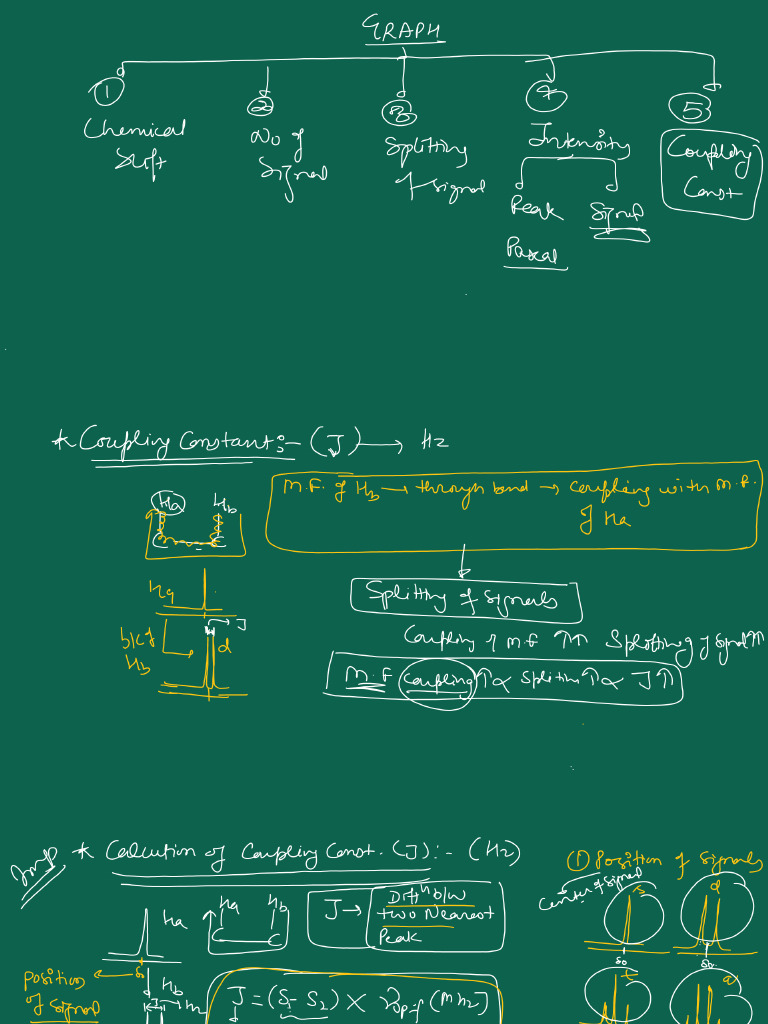 GRAPH
① ② ③ 4 ⑤
Chemical Shift
No of Signal
Splitting of signal
Intensity
Peak Signal
Coupling Const
* Coupling Constant:- (J) → Hz
Ha Hb
C C
M.F. of Hb → through bond → Coupling with M.F. of Ha
Splitting of Signals
Coupling of M.F ↑↑ Splitting of signal ↑↑
M.F Coupling ↑ ∝ Splitting ↑ ∝ J ↑
Ha
J
b/c of Hb
d
Imp * Calculation of Coupling Const. (J):- (Hz)
① Position of Signals
Center of Signal
s d
Ha
Ha Hb
C C
J → Diffⁿ b/w two Nearest Peak
δ₀ δ₀
Position of Signal
δ₀
Hb
J Hz
t q